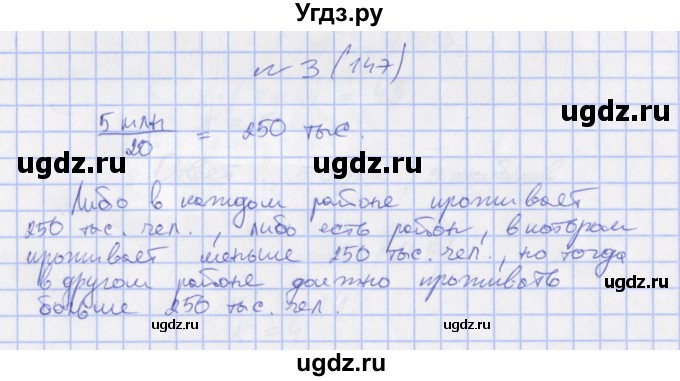 Угдз.ру
№ 3 (147)
5 млн / 20 = 250 тыс.
ugdz.ru ugdz.ru ugdz.ru
Либо в каждом районе проживает
ugdz.ru
250 тыс. чел., либо есть район, в котором
ugdz.ru ugdz.ru
проживает меньше 250 тыс. чел., но тогда
в другом районе должно проживать
ugdz.ru
больше 250 тыс. чел.
ugdz.ru ugdz.ru
ugdz.ru